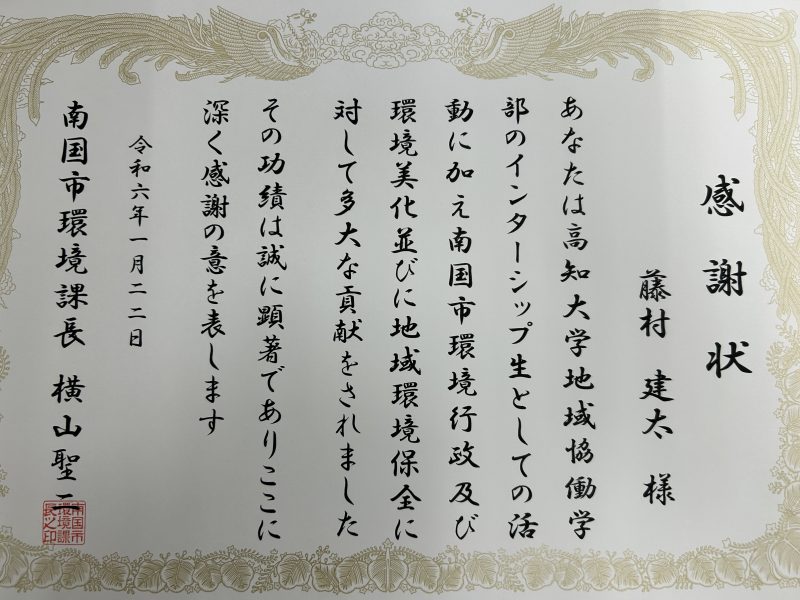 感謝状
藤村 建太 様
あなたは高知大学地域協働学
部のインターンシップ生としての活
動に加え南国市環境行政及び
環境美化並びに地域環境保全に
対して多大な貢献をされました
その功績は誠に顕著でありここに
深く感謝の意を表します
令和六年一月二二日
南国市環境課長 横山聖二
南国市
環境課
長之印